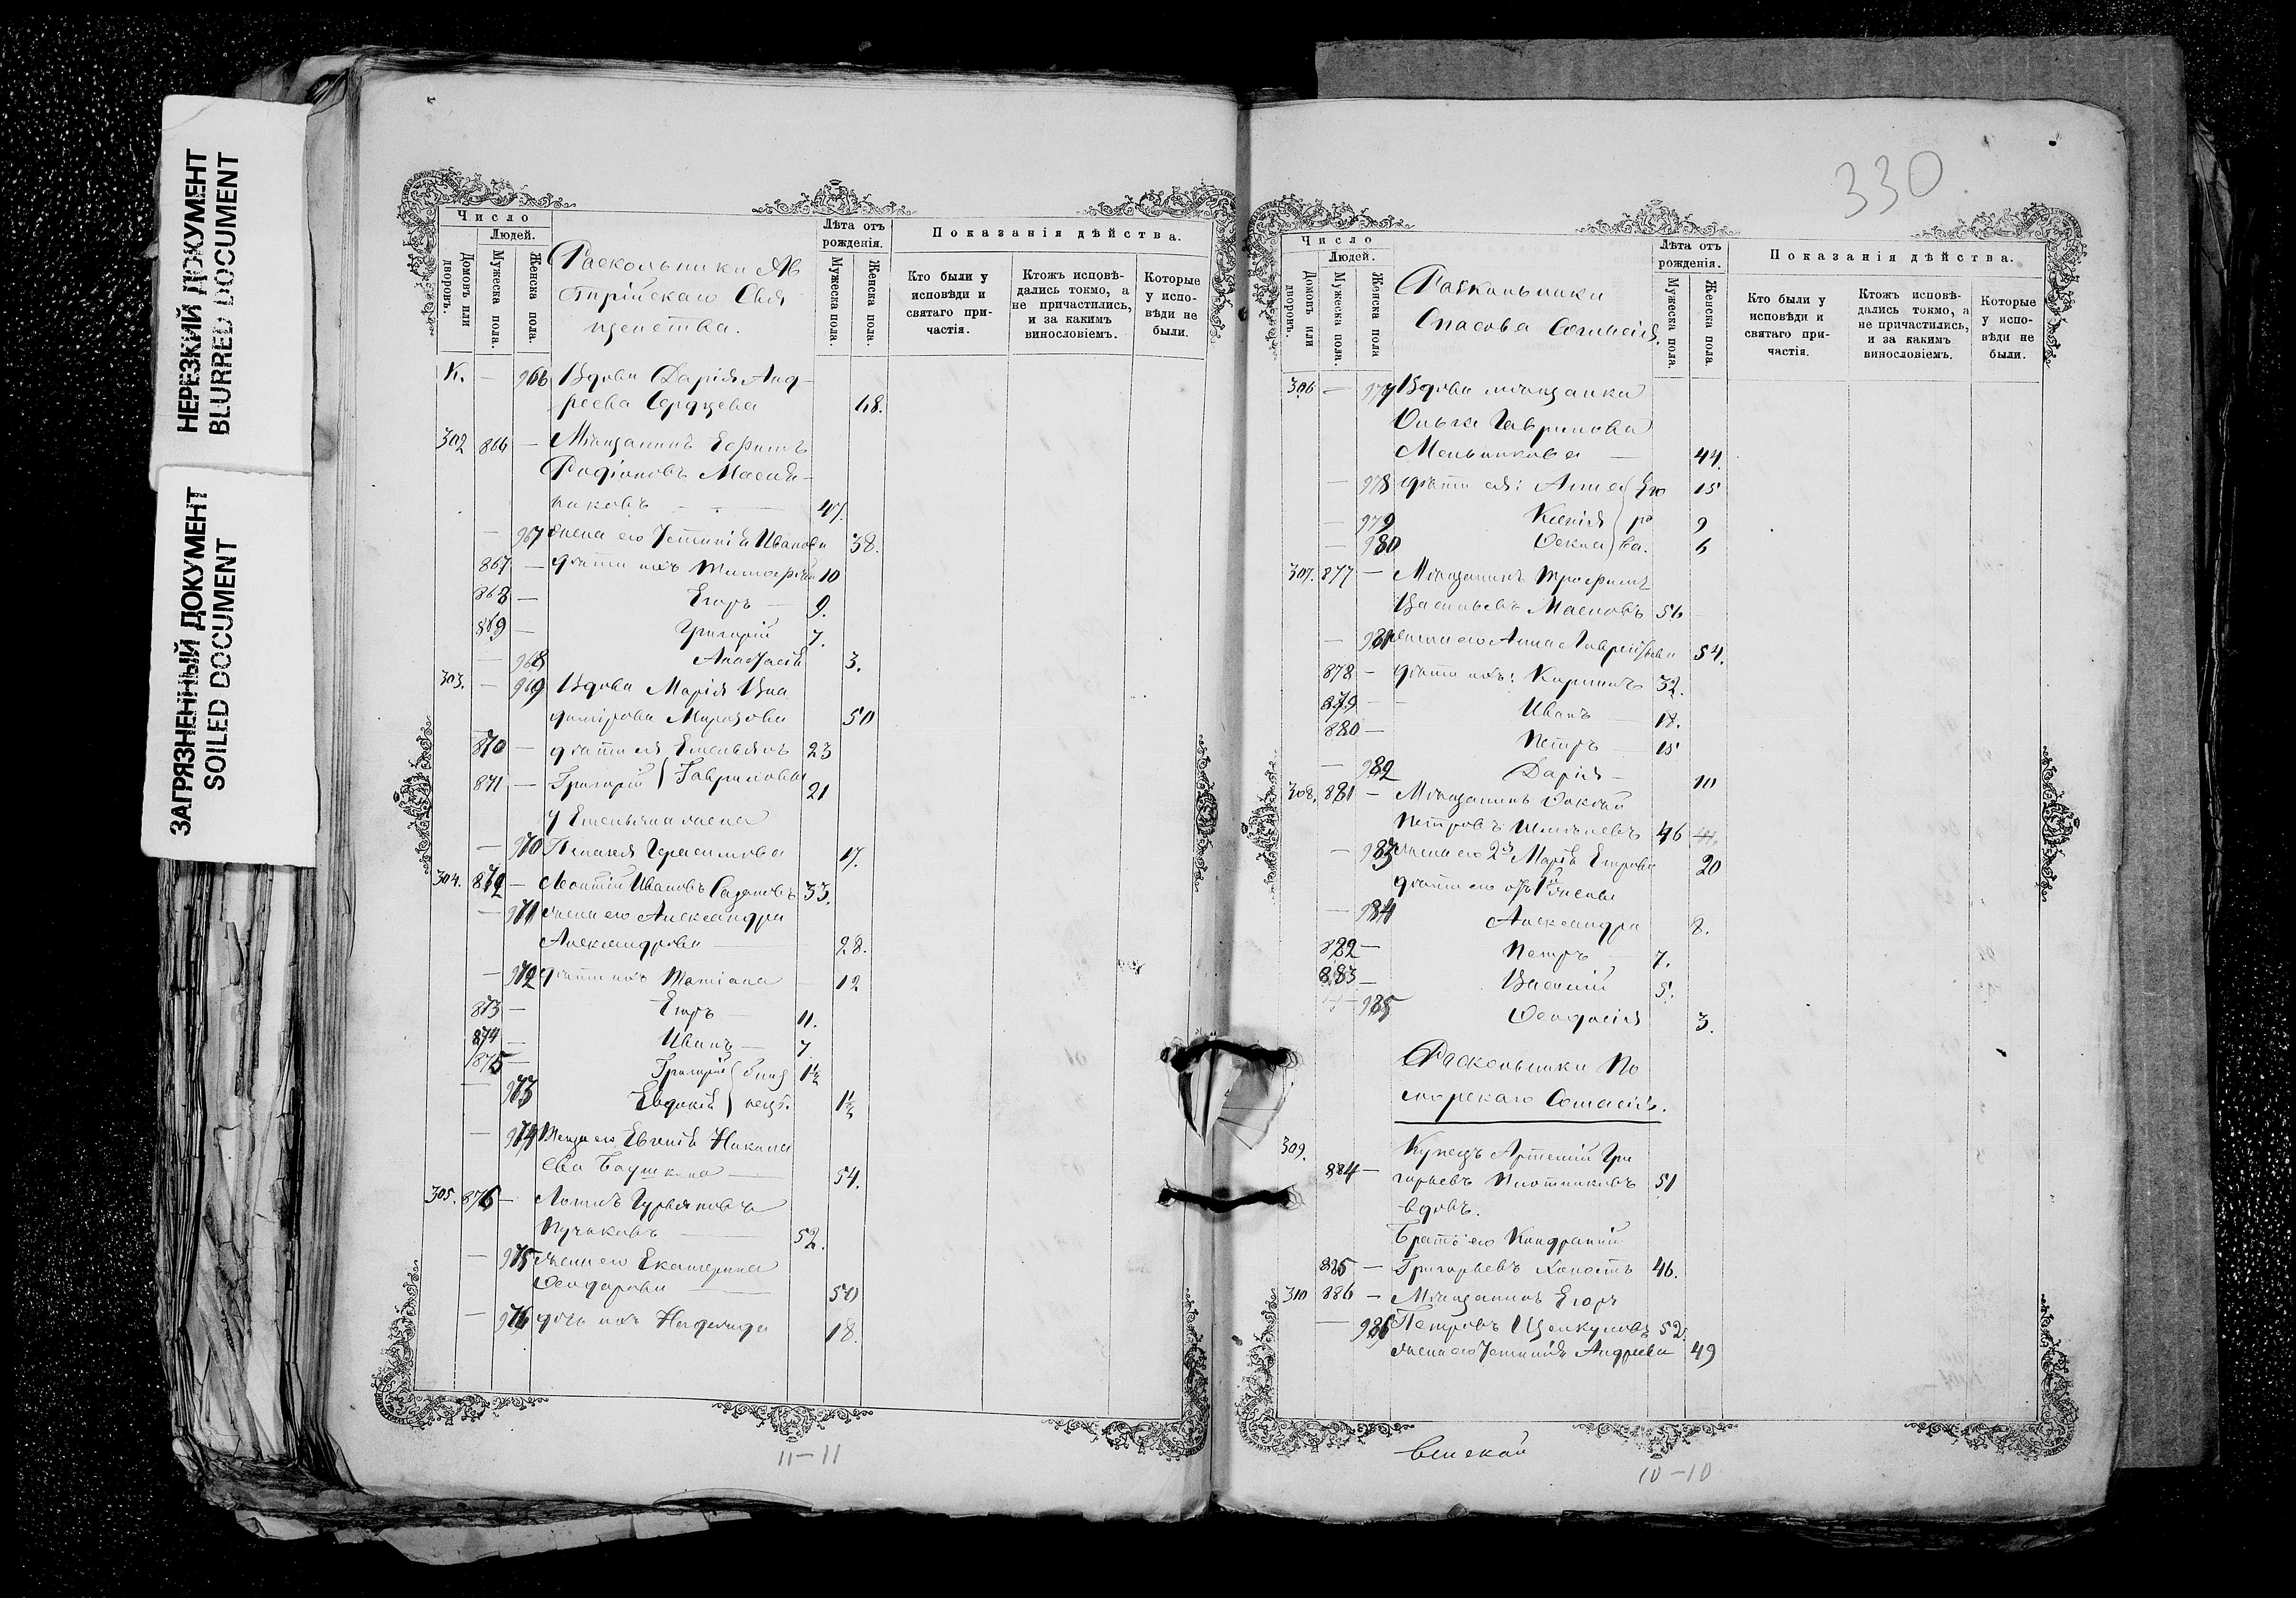 НЕРЕЗКИЙ ДОКУМЕНТ
BLURRED DOCUMENT
ЗАГРЯЗНЕННЫЙ ДОКУМЕНТ
SOILED DOCUMENT
Число
Людей.
Домовъ или дворовъ.
Мужеска пола.
Женска пола.
Раскольники Ав
стрійскаго Свя
щенства.
Лѣта отъ рожденія.
Мужеска пола.
Женска пола.
Показанія дѣйства.
Кто были у исповѣди и святаго причастія.
Ктожъ исповѣдались токмо, а не причастились, и за какимъ винословіемъ.
Которые у исповѣди не были.
К. — 966 Вдова Дарія Анд-
реева 68.
302 866 — Мѣщанинъ Ефимъ
Родіоновъ Маслян-
никовъ 47.
— 967 жена его Устинія Иванова 38.
867 — дѣти ихъ Тимофей 10
868 — Егоръ — 9.
869 — Григорій 7.
— 968 Анастасія 3.
303. — 969 Вдова Марія Вла
димірова Морозова 50
870 — дѣти ея Емельянъ 23
871 — Григорій } Гавриловы 21
у Емельяна жена
— 970 Пелагея Герасимова 17.
304. 872 — Леонтій Ивановъ Сазоновъ 33.
— 971 жена его Александра
Александрова 28.
— 972 дѣти ихъ Татіана 12
873 — Егоръ — 11.
874 — Иванъ — 7
875 — Григорій } близ 1½
— 973 Евдокія } нецы. 1½
— 974 Теща его Евгенія Никола
ева 54.
305. 876 — Гурьяновъ
Пучковъ 52.
— 975 жена его Екатерина
Ѳеодорова 50
— 976 дочь ихъ Надежда 18.
11-11
330
Число
Людей.
Домовъ или дворовъ.
Мужеска пола.
Женска пола
Раскольники
Спасова Согласія.
Лѣта отъ рожденія.
Мужеска пола.
Женска пола
Показанія дѣйства.
Кто были у исповѣди и святаго причастія.
Ктожъ исповѣдались токмо, а не причастились, и за какимъ винословіемъ.
Которые у исповѣди не были.
306 — 977 Вдова мѣщанка
Ольга Гаврилова
Мельникова — 44.
— 978 дѣти ея: Анна } Его 15
— 979 Ксенія } ро 9
— 980 Ѳекла } ва. 6
307. 877 — Мѣщанинъ Трофимъ
Васильевъ Масловъ 56
— 981 жена его Анна 54.
878 — дѣти ихъ: Кириллъ 32.
879 — Иванъ — 18.
880 — Петръ — 15
— 982 Дарія — 10
308. 881 — Мѣщанинъ
Петровъ 46
— 983 жена его 2я Марія Егорова 20
дѣти его отъ 1й жены
— 984 Александра 8.
882 — Петръ 7.
883 — Василій 5.
— 985 Ѳеодосія 3.
Раскольники По
морскаго Согласія.
309. Купецъ Артемій Гри
884 — горьевъ Плотниковъ 51
вдовъ.
Братъ его Кондратій
885 — Григорьевъ холостъ 46.
310 886 — Мѣщанинъ Егоръ
— 986 Петровъ 52.
жена его Устинія Андреева 49
10-10